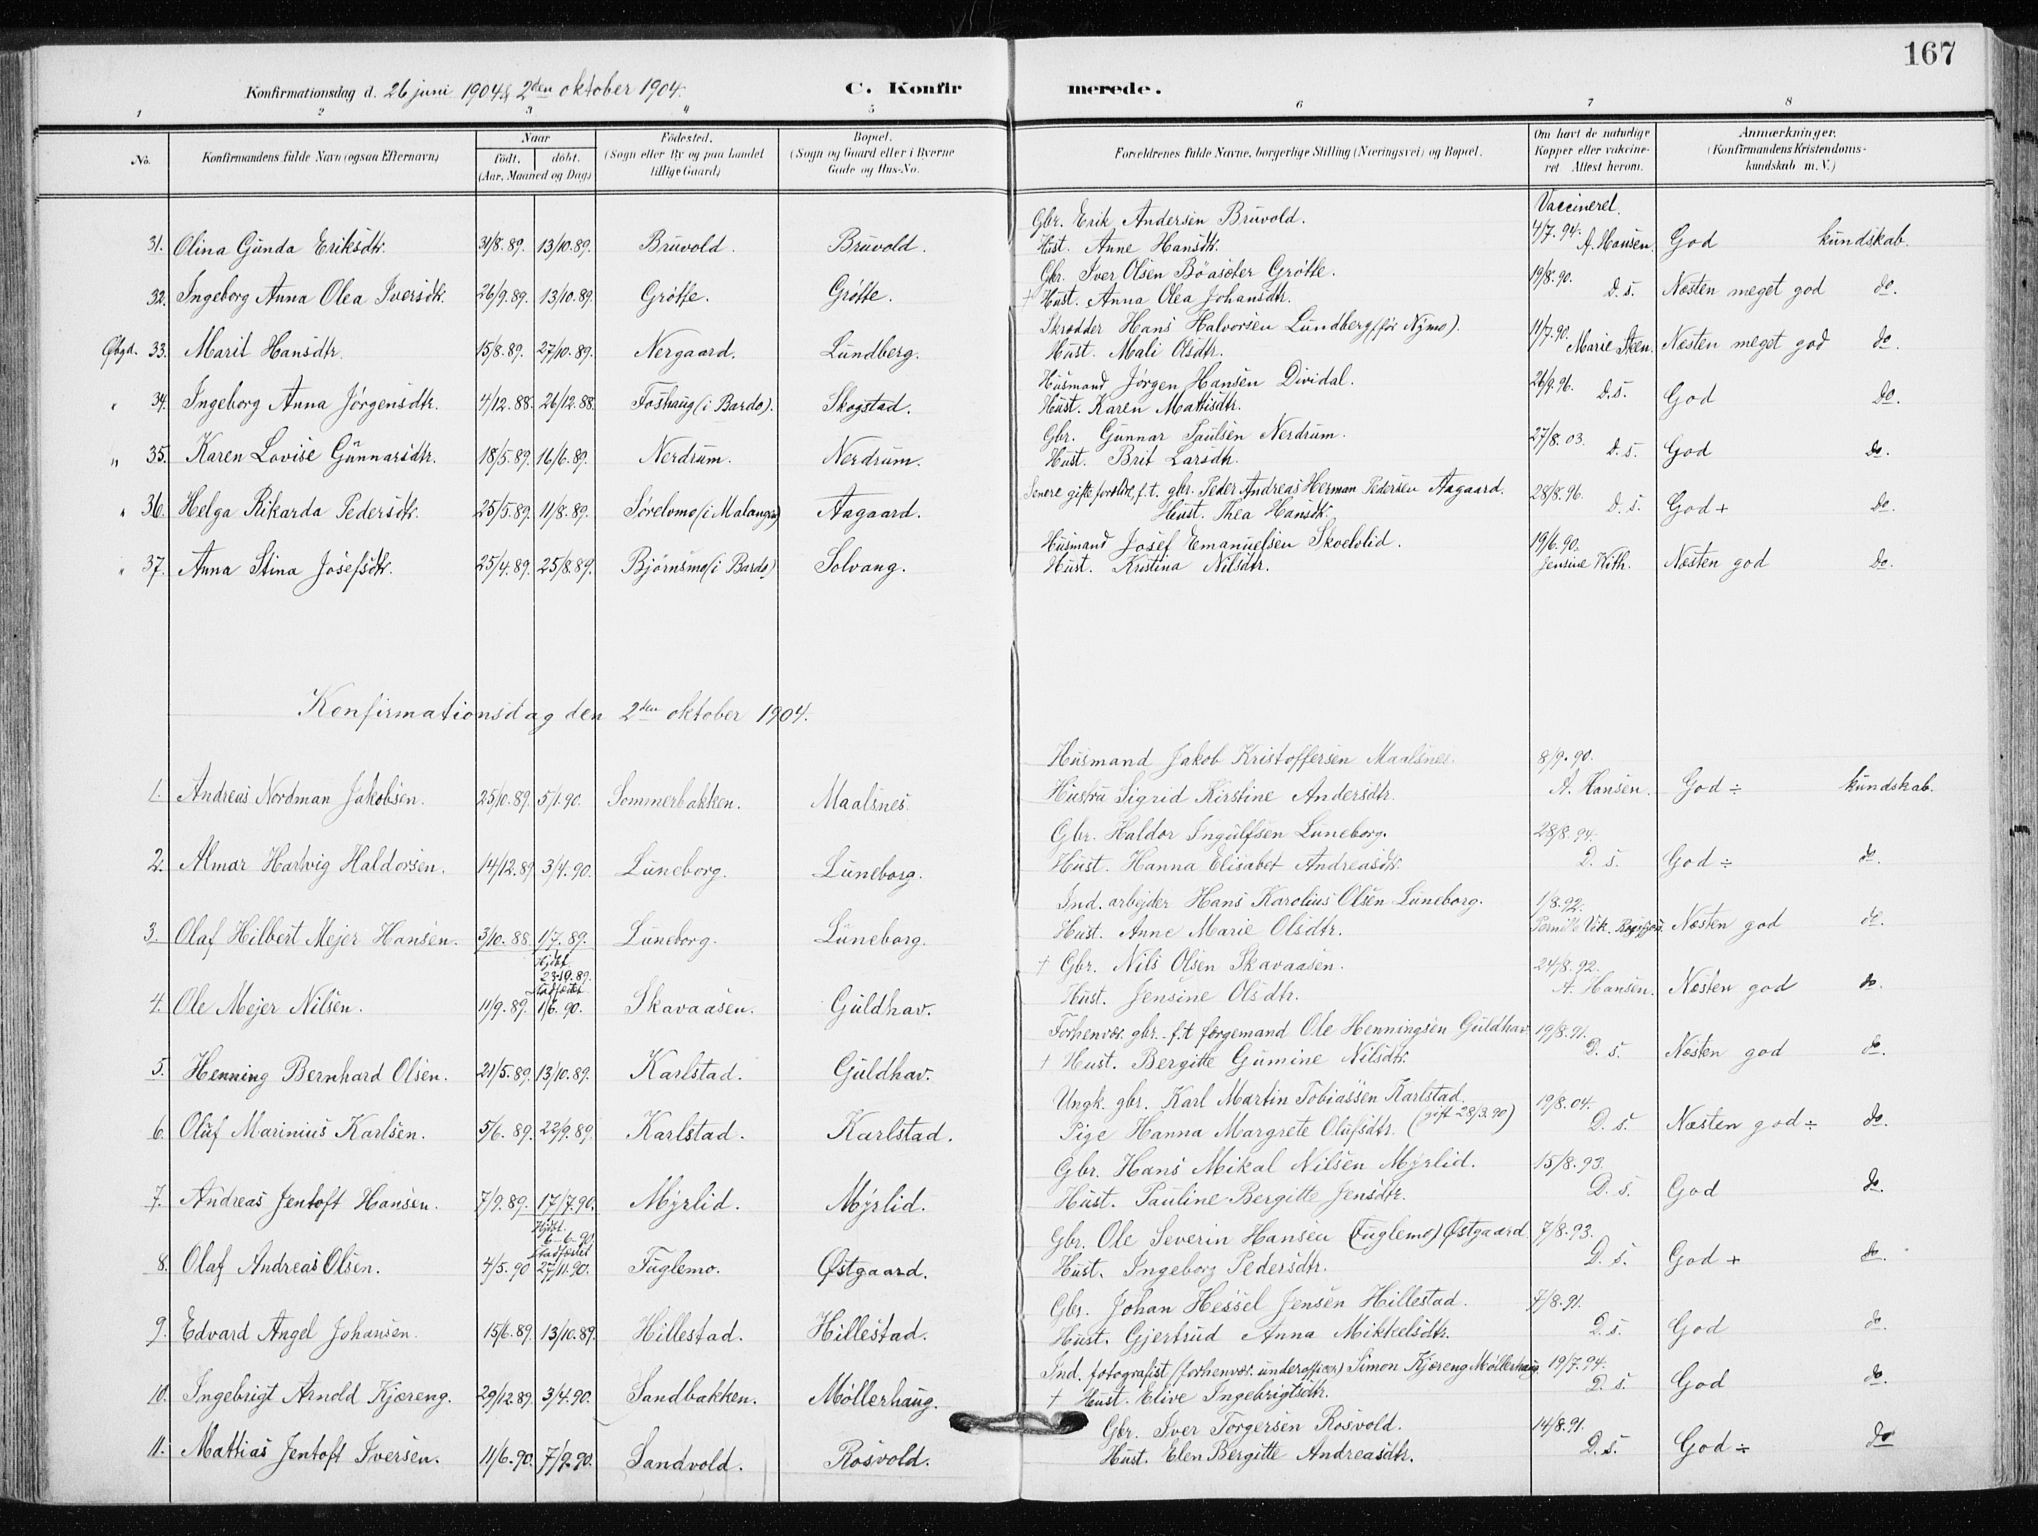 167
Konfirmationsdag d. 26 juni 1904 & 2den oktober 1904. C. Konfirmerede.
1 2 3 4 5 6 7 8
No. Konfirmandens fulde Navn (ogsaa Efternavn) Naar født, døbt, (Aar, Maaned og Dag) Fødested. (Sogn eller By og paa Landet tillige Gaard) Bopæl. (Sogn og Gaard eller i Byerne Gade og Hus-No. Forældrenes fulde Navne, borgerlige Stilling (Næringsvei) og Bopæl. Om havt de naturlige Kopper eller vakcineret Attest herom. Anmærkninger. (Konfirmandens Kristendomskundskab m. V.)
Vaccineret.
Gbr. Erik Andersen Bruvold.
31. Olina Gunda Eriksdtr. 31/8.89. 13/10.89. Bruvold. Bruvold. Hust. Anne Hansdtr. 4/7.94. A. Hansen. God kundskab.
Gbr. Iver Olsen Bøasæter Grøtte. 19/8.90.
32. Ingeborg Anna Olea Iversdtr. 26/9.89. 13/10.89. Grøtte. Grøtte. † Hust. Anna Olea Johansdtr. D. s. Næsten meget god do.
Skrædder Hans Halvorsen Lundberg (før Nymo). 11/7.90.
Øbgd. 33. Marit Hansdtr. 15/8.89. 27/10.89. Nergaard. Lundberg. Hust. Mali Olsdtr. Marie Steen. Næsten meget god do.
Husmand Jørgen Hansen Dividal. 26/9.96.
" 34. Ingeborg Anna Jørgensdtr. 4/12.88. 26/12.88. Foshaug (i Bardo). Skogstad. Hust. Karen Mattisdtr. D. s. God do.
Gbr. Gunnar Paulsen Nerdrum. 27/8.03.
" 35. Karen Lovise Gunnarsdtr. 18/5.89. 16/6.89. Nerdrum. Nerdrum. Hust. Brit Larsdtr. D. s. God do.
Senere gifte foreldre, f.t. gbr. Peder Andreas Herman Pedersen Aagaard. 28/8.96.
" 36. Helga Rikarda Pedersdtr. 25/5.89. 11/8.89. Sørelvmo (i Malangen) Aagaard. Hust. Thea Hansdtr. D. s. God + do.
Husmand Josef Emanuelsen Skoelvlid. 19/6.90.
" 37. Anna Stina Josefsdtr. 25/4.89. 25/8.89. Bjørnsmo (i Bardo) Solvang. Hust. Kristina Nilsdtr. Jensine Kith. Næsten god do.
Konfirmationsdag den 2den oktober 1904.
Husmand Jakob Kristoffersen Maalsnes. 8/9.90.
1. Andreas Nordman Jakobsen. 25/10.89. 5/1.90. Sommerbakken. Maalsnes. Hustru Sigrid Kirstine Andersdtr. A. Hansen. God ÷ kundskab.
Gbr. Haldor Ingulfsen Luneborg. 28/8.94.
2. Almar Hartvig Haldorsen. 14/12.89. 3/4.90. Luneborg. Luneborg. Hust. Hanna Elisabet Andreasdtr. D. s. God ÷ do.
Ind. arbejder Hans Karolius Olsen Luneborg. 1/8.92.
3. Olaf Hilbert Mejer Hansen. 3/10.88. 1/7.89. Luneborg. Luneborg. Hust. Anne Marie Olsdtr. Næsten god do.
Hjdbt. 23-10.89. Stadfæstet † Gbr. Nils Olsen Skavaasen. 24/8.92.
4. Ole Mejer Nilsen. 11/9.89. 1/6.90. Skavaasen. Guldhav. Hust. Jensine Olsdtr. A. Hansen. Næsten god do.
Forhenvær. gbr. f.t. færgemand Ole Henningsen Guldhav 19/8.91.
5. Henning Bernhard Olsen. 21/5.89. 13/10.89. Karlstad. Guldhav. † Hust. Bergitte Gumine Nilsdtr. D. s. Næsten god do.
Ungk. gbr. Karl Martin Tobiassen Karlstad. 19/8.04.
6. Oluf Marinius Karlsen. 5/6.89. 22/9.89. Karlstad. Karlstad. Pige Hanna Margrete Olufsdtr. (gift 28/3.90) D. s. Næsten god ÷ do.
Gbr. Hans Mikal Nilsen Myrlid. 15/8.93.
7. Andreas Jentoft Hansen. 7/9.89. 17/7.90. Myrlid. Myrlid. Hust. Pauline Bergitte Jensdtr. D. s. God do.
Hjdbt. 6-6-90. Stadfæstet Gbr. Ole Severin Hansen (Fuglemo) Østgaard. 7/8.93.
8. Olaf Andreas Olsen. 4/5.90 27/11.90. Fuglemo. Østgaard. Hust. Ingeborg Pedersdtr. D. s. God + do.
Gbr. Johan Hessel Jensen Hillestad. 7/8.91.
9. Edvard Angel Johansen. 15/6.89. 13/10.89. Hillestad. Hillestad. Hust. Gjertrud Anna Mikkelsdtr. D. s. God do.
Ind. fotografist (forhenvær. underofficer) Simon Kjæreng Møllerhaug 19/7.94.
10. Ingebrigt Arnold Kjæreng. 29/12.89. 3/4.90. Sandbakken. Møllerhaug. † Hust. Elive Ingebrigtsdtr. D. s. God do.
Gbr. Iver Torgersen Rosvold. 14/8.91.
11. Mattias Jentoft Iversen. 11/6.90. 7/9.90. Sandvold. Rosvold. Hust. Elen Bergitte Andreasdtr. D. s. God ÷ do